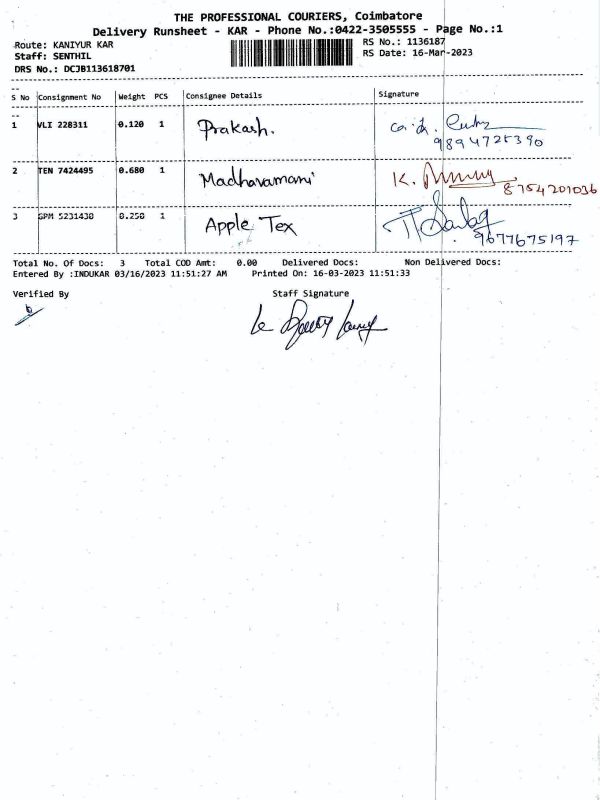 THE PROFESSIONAL COURIERS, Coimbatore
Delivery Runsheet - KAR - Phone No.:0422-3505555 - Page No.:1
Route: KANIYUR KAR RS No.: 1136187
Staff: SENTHIL RS Date: 16-Mar-2023
DRS No.: DCJB113618701
S No Consignment No Weight PCS Consignee Details Signature
1 VLI 228311 0.120 1 Prakash.
9894725390
2 TEN 7424495 0.680 1 Madhavamani K.
8754201036
3 GPM 5231430 0.250 1 Apple Tex
9677675197
Total No. Of Docs: 3 Total COD Amt: 0.00 Delivered Docs: Non Delivered Docs:
Entered By :INDUKAR 03/16/2023 11:51:27 AM Printed On: 16-03-2023 11:51:33
Verified By Staff Signature